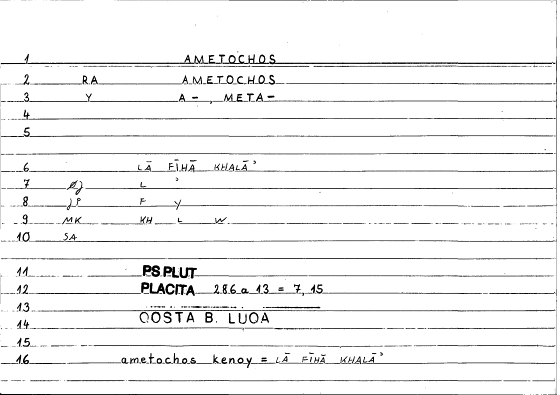 1 AMETOCHOS
2 RA AMETOCHOS
3 Y A – , META –
4
5
6 LĀ FĪHĀ KHALĀʾ
7 L ʾ
8 F Y
9 MK KH L W
10 SA
11 PS.PLUT
12 PLACITA 286 a 13 = 7, 15
13
14 QOSTA B. LUQA
15
16 ametochos kenoy = LĀ FĪHĀ KHALĀʾ